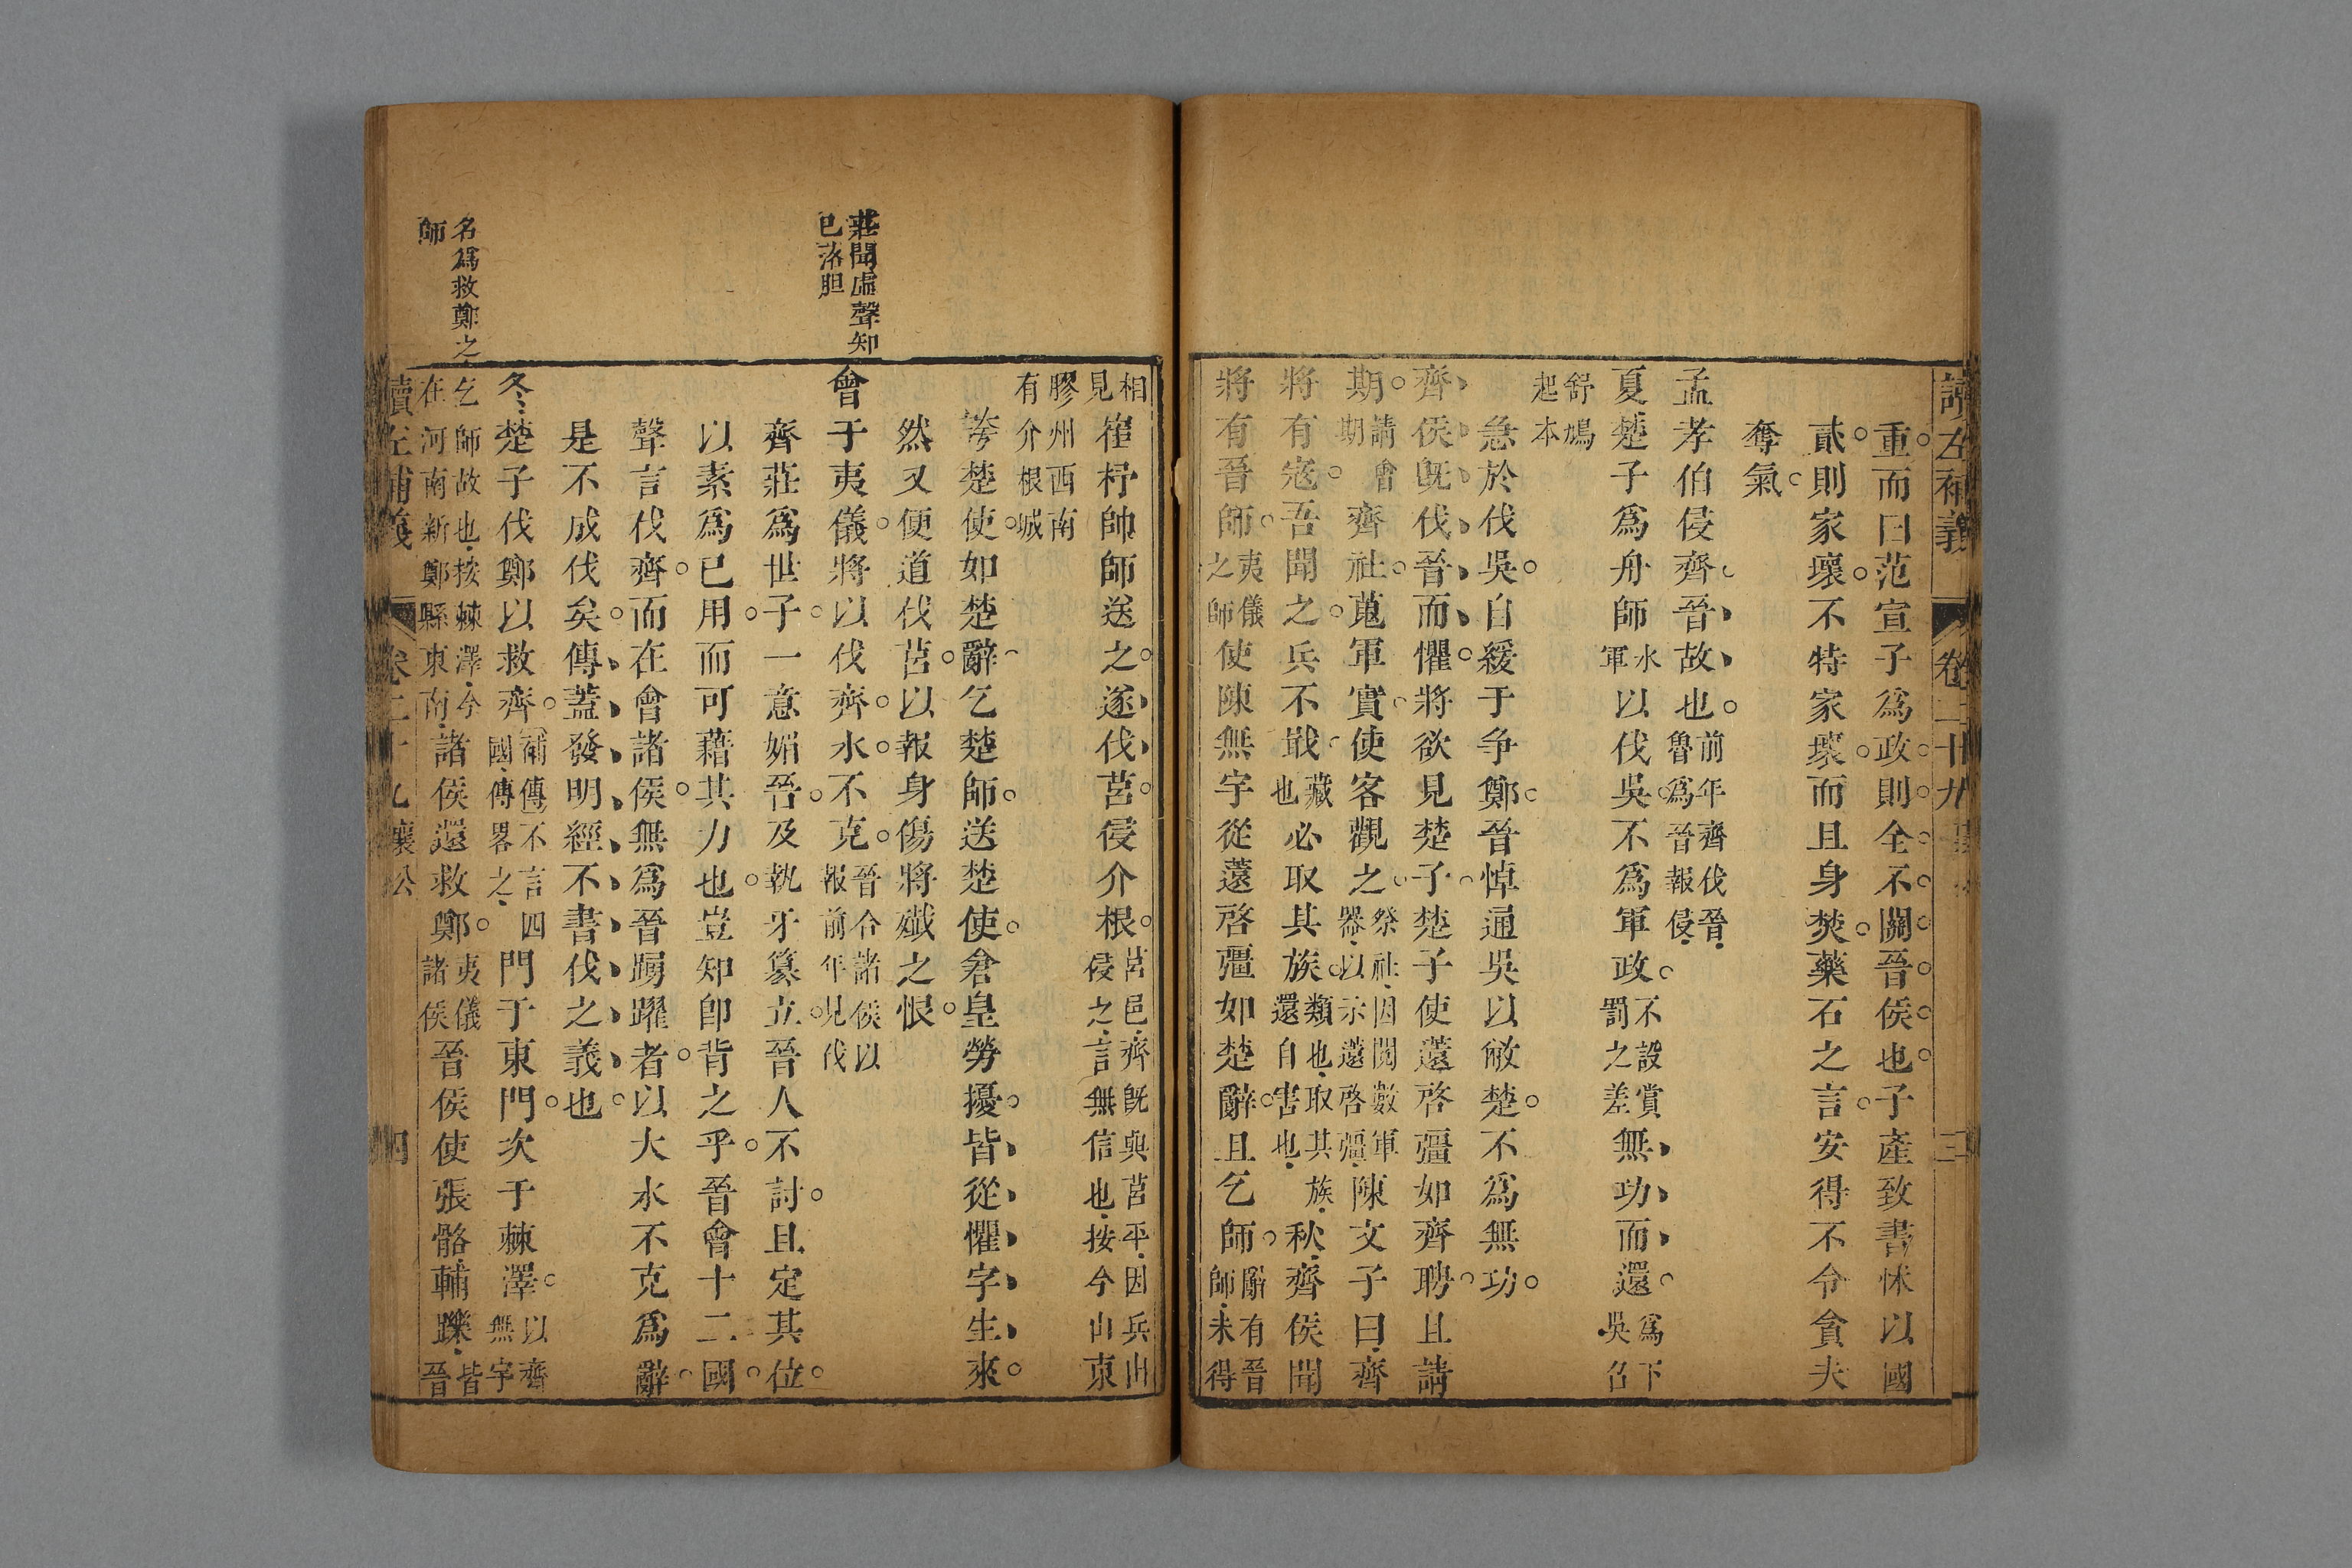 讀左補義 卷二十九 三
重而曰范宣子爲政則全不關晉侯也子產致書怵以國
貳則家壞不特家壞而且身焚藥石之言安得不令貪夫
奪氣
孟孝伯侵齊晉故也前年齊伐晉魯爲晉報侵
夏楚子爲舟師水軍以伐吳不爲軍政不設賞罰之差無功而還爲下吳召
舒鳩起本
急於伐吳自緩于争鄭晉悼通吳以敝楚不爲無功
齊侯旣伐晉而懼將欲見楚子楚子使薳啓彊如齊聘且請
期請會期齊社蒐軍實使客觀之祭社因閱數軍器以示薳啓彊陳文子曰齊
將有寇吾聞之兵不戢藏也必取其族類也取其族還自害也秋齊侯聞
將有晉師夷儀之師使陳無宇從薳啓彊如楚辭且乞師辭有晉師未得
相見崔杼帥師送之遂伐莒侵介根莒邑齊旣與莒平因兵出侵之言無信也按今山東
膠州西南有介根城
誇楚使如楚辭乞楚師送楚使倉皇勞擾皆從懼字生來
然又便道伐莒以報身傷將殲之恨
會于夷儀將以伐齊水不克晉合諸侯以報前年見伐
齊莊爲世子一意媚晉及執牙簒立晉人不討且定其位
以素爲已用而可藉其力也豈知卽背之乎晉會十二國
聲言伐齊而在會諸侯無爲晉踴躍者以大水不克爲辭
是不成伐矣傳蓋發明經不書伐之義也
冬楚子伐鄭以救齊補傳不言四國傳畧之門于東門次于棘澤以齊無宇
乞師故也按棘澤今在河南新鄭縣東南諸侯還救鄭夷儀諸侯晉侯使張骼輔躒皆晉
讀左補義 卷二十九 襄公 四
莊聞虛聲知
已落胆
名爲救鄭之
師